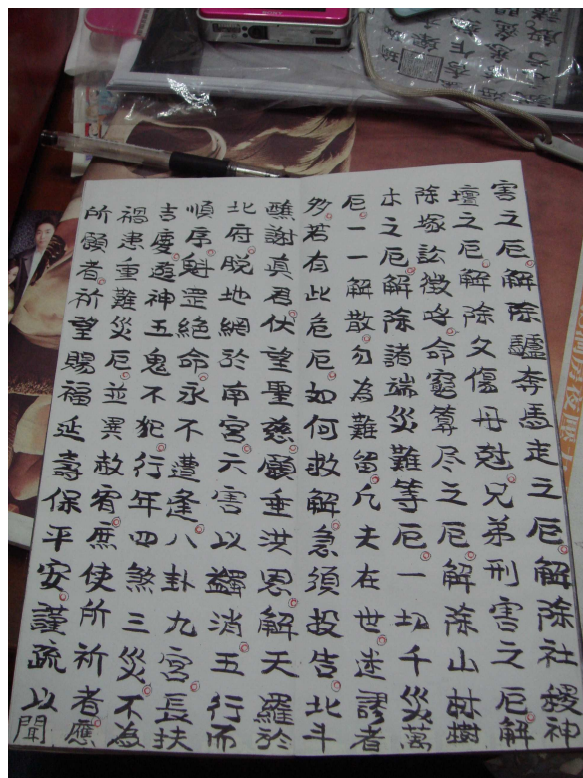 害之厄解除驢奔馬走之厄解除社稷神
壇之厄解除父傷母尅兄弟刑害之厄解
除塚訟徵呼命窮算尽之厄解除山林樹
木之厄解除諸端災難等厄一切千災萬
厄一一解散勿為難留凡夫在世迷謬者
多若有此危厄如何救解急須投告北斗
醮謝真君伏望聖慈願垂洪恩解天羅於
北府脫地網於南宮六害以蠲消五行而
順序魁罡絕命永不遭逢八卦九宮長扶
吉慶遊神五鬼不犯行年四煞三災不為
禍患重難災厄並異赦宥庶使所祈者應
所願者祈望賜福延壽保平安謹疏以聞